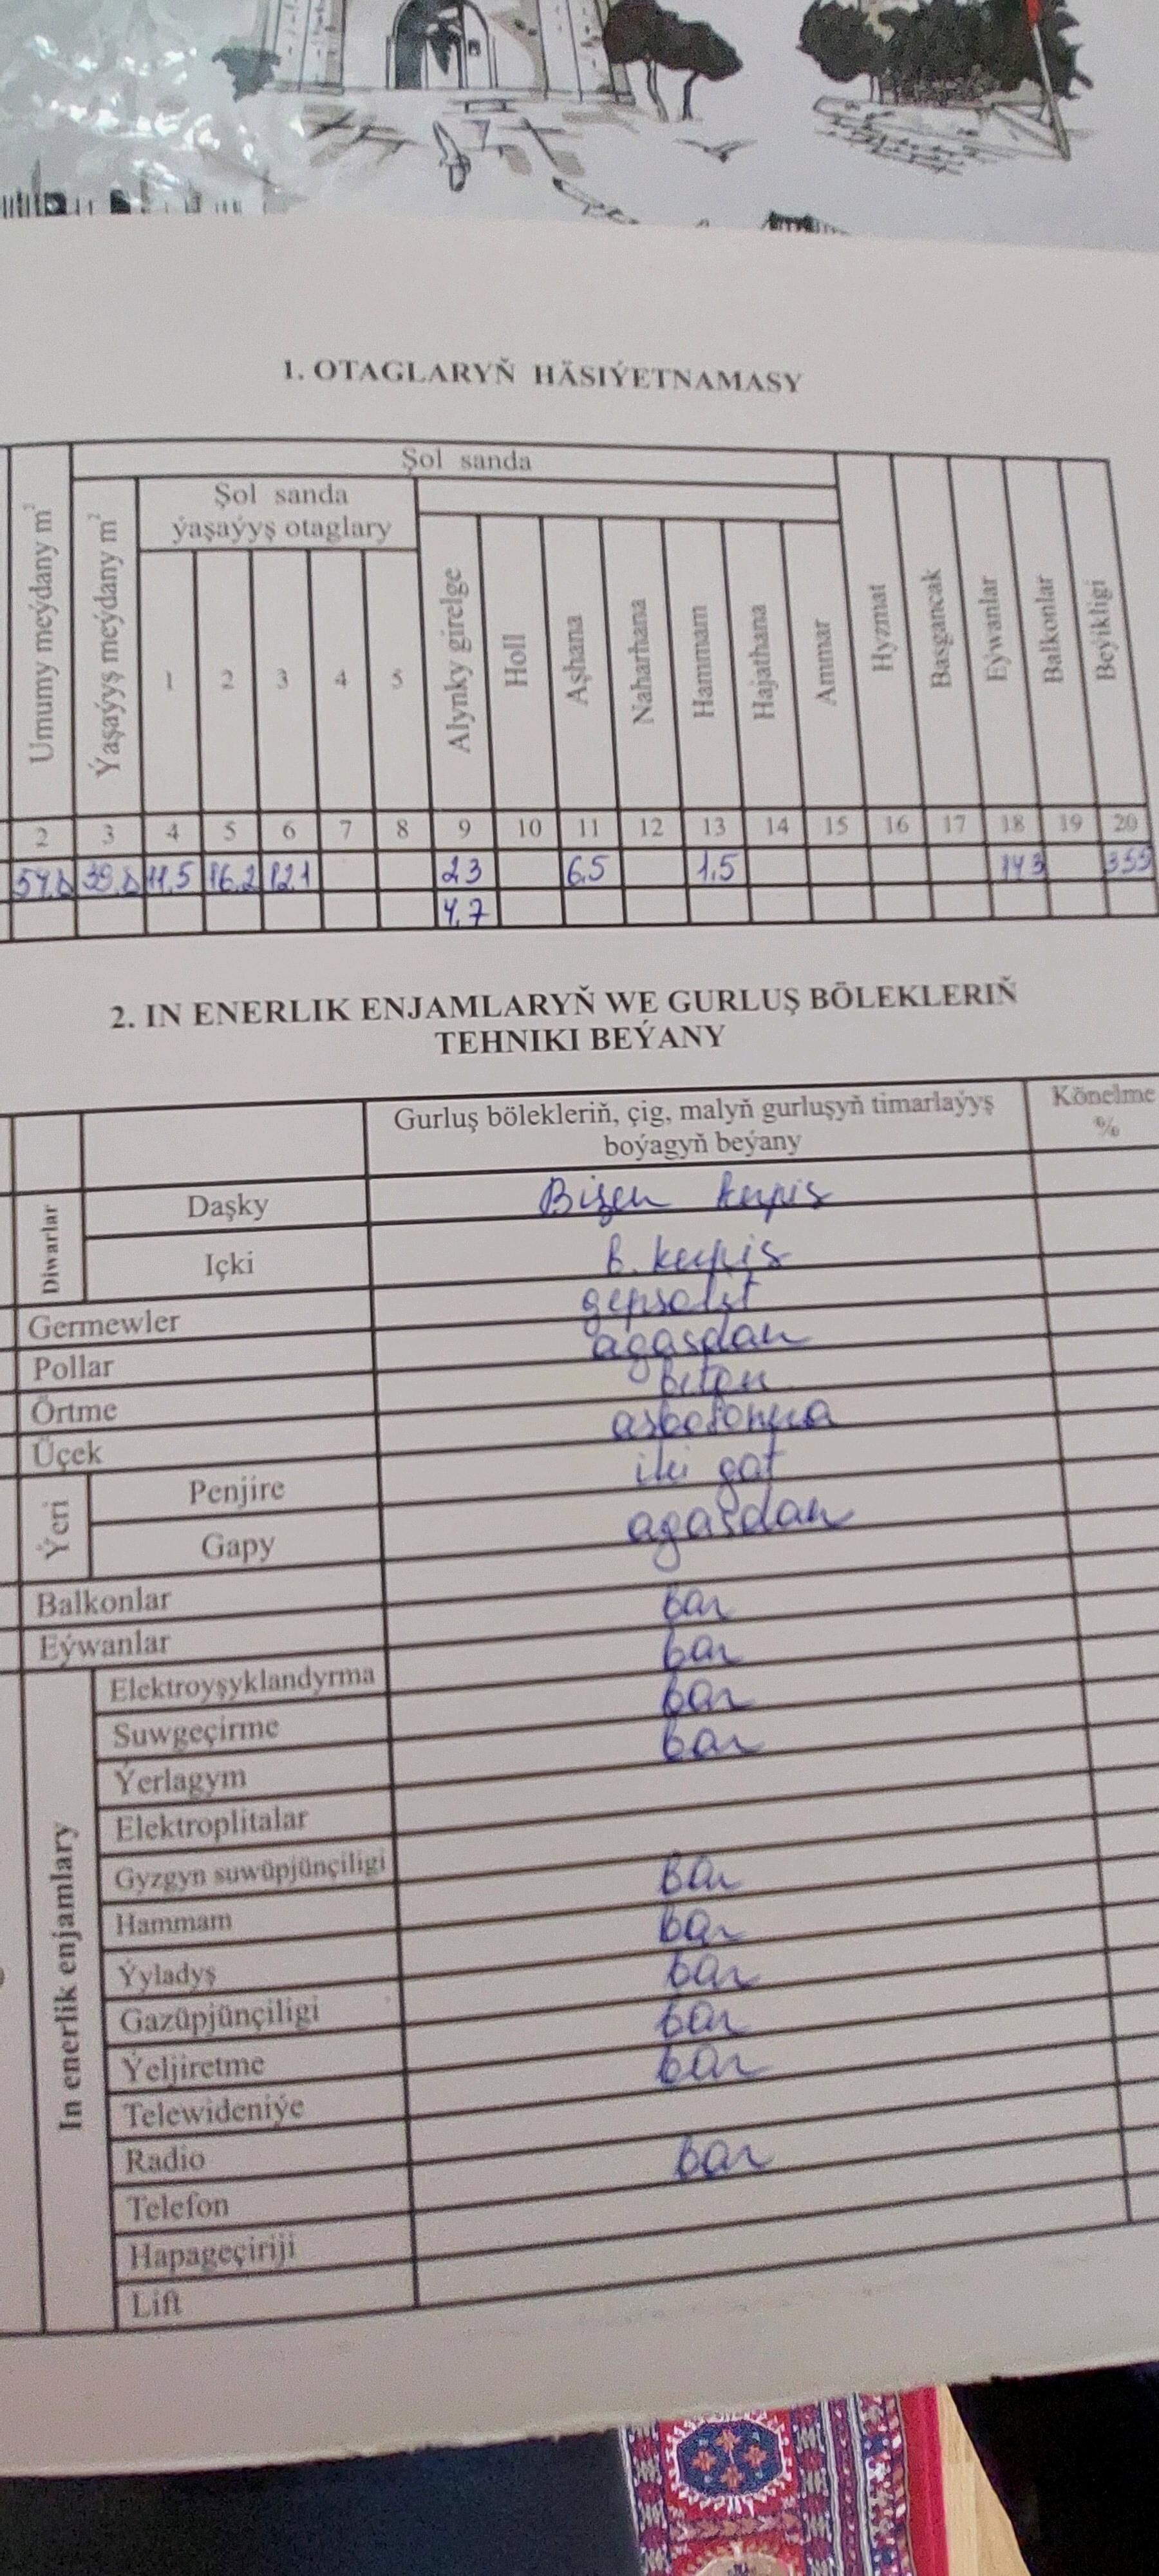 1. OTAGLARYŇ HÄSIÝETNAMASY
Şol sanda
Şol sanda
ýaşaýyş otaglary
Umumy meýdany m²
Ýaşaýyş meýdany m²
1 2 3 4 5
Alynky girelge
Holl
Aşhana
Naharhana
Hammam
Hajathana
Ammar
Hyzmat
Basgancak
Eýwanlar
Balkonlar
Beýikligi
2 3 4 5 6 7 8 9 10 11 12 13 14 15 16 17 18 19 20
11,5 16,2 12,1 2,3 6,5 1,5 14,3 355
4,7
2. IN ENERLIK ENJAMLARYŇ WE GURLUŞ BÖLEKLERIŇ
TEHNIKI BEÝANY
Gurluş bölekleriň, çig, malyň gurluşyň timarlaýyş
boýagyň beýany
Könelme
%
Diwarlar
Daşky Bişen kerpiç
Içki b. kerpiç
Germewler
Pollar agaşdan
Örtme beton
Üçek
Ýeri
Penjire iki gat
Gapy agaşdan
Balkonlar bar
Eýwanlar bar
In enerlik enjamlary
Elektroyşyklandyrma bar
Suwgeçirme bar
Ýerlagym
Elektroplitalar
Gyzgyn suwüpjünçiligi bar
Hammam bar
Ýyladyş bar
Gazüpjünçiligi bar
Ýeljiretme bar
Telewideniýe
Radio bar
Telefon
Hapageçiriji
Lift